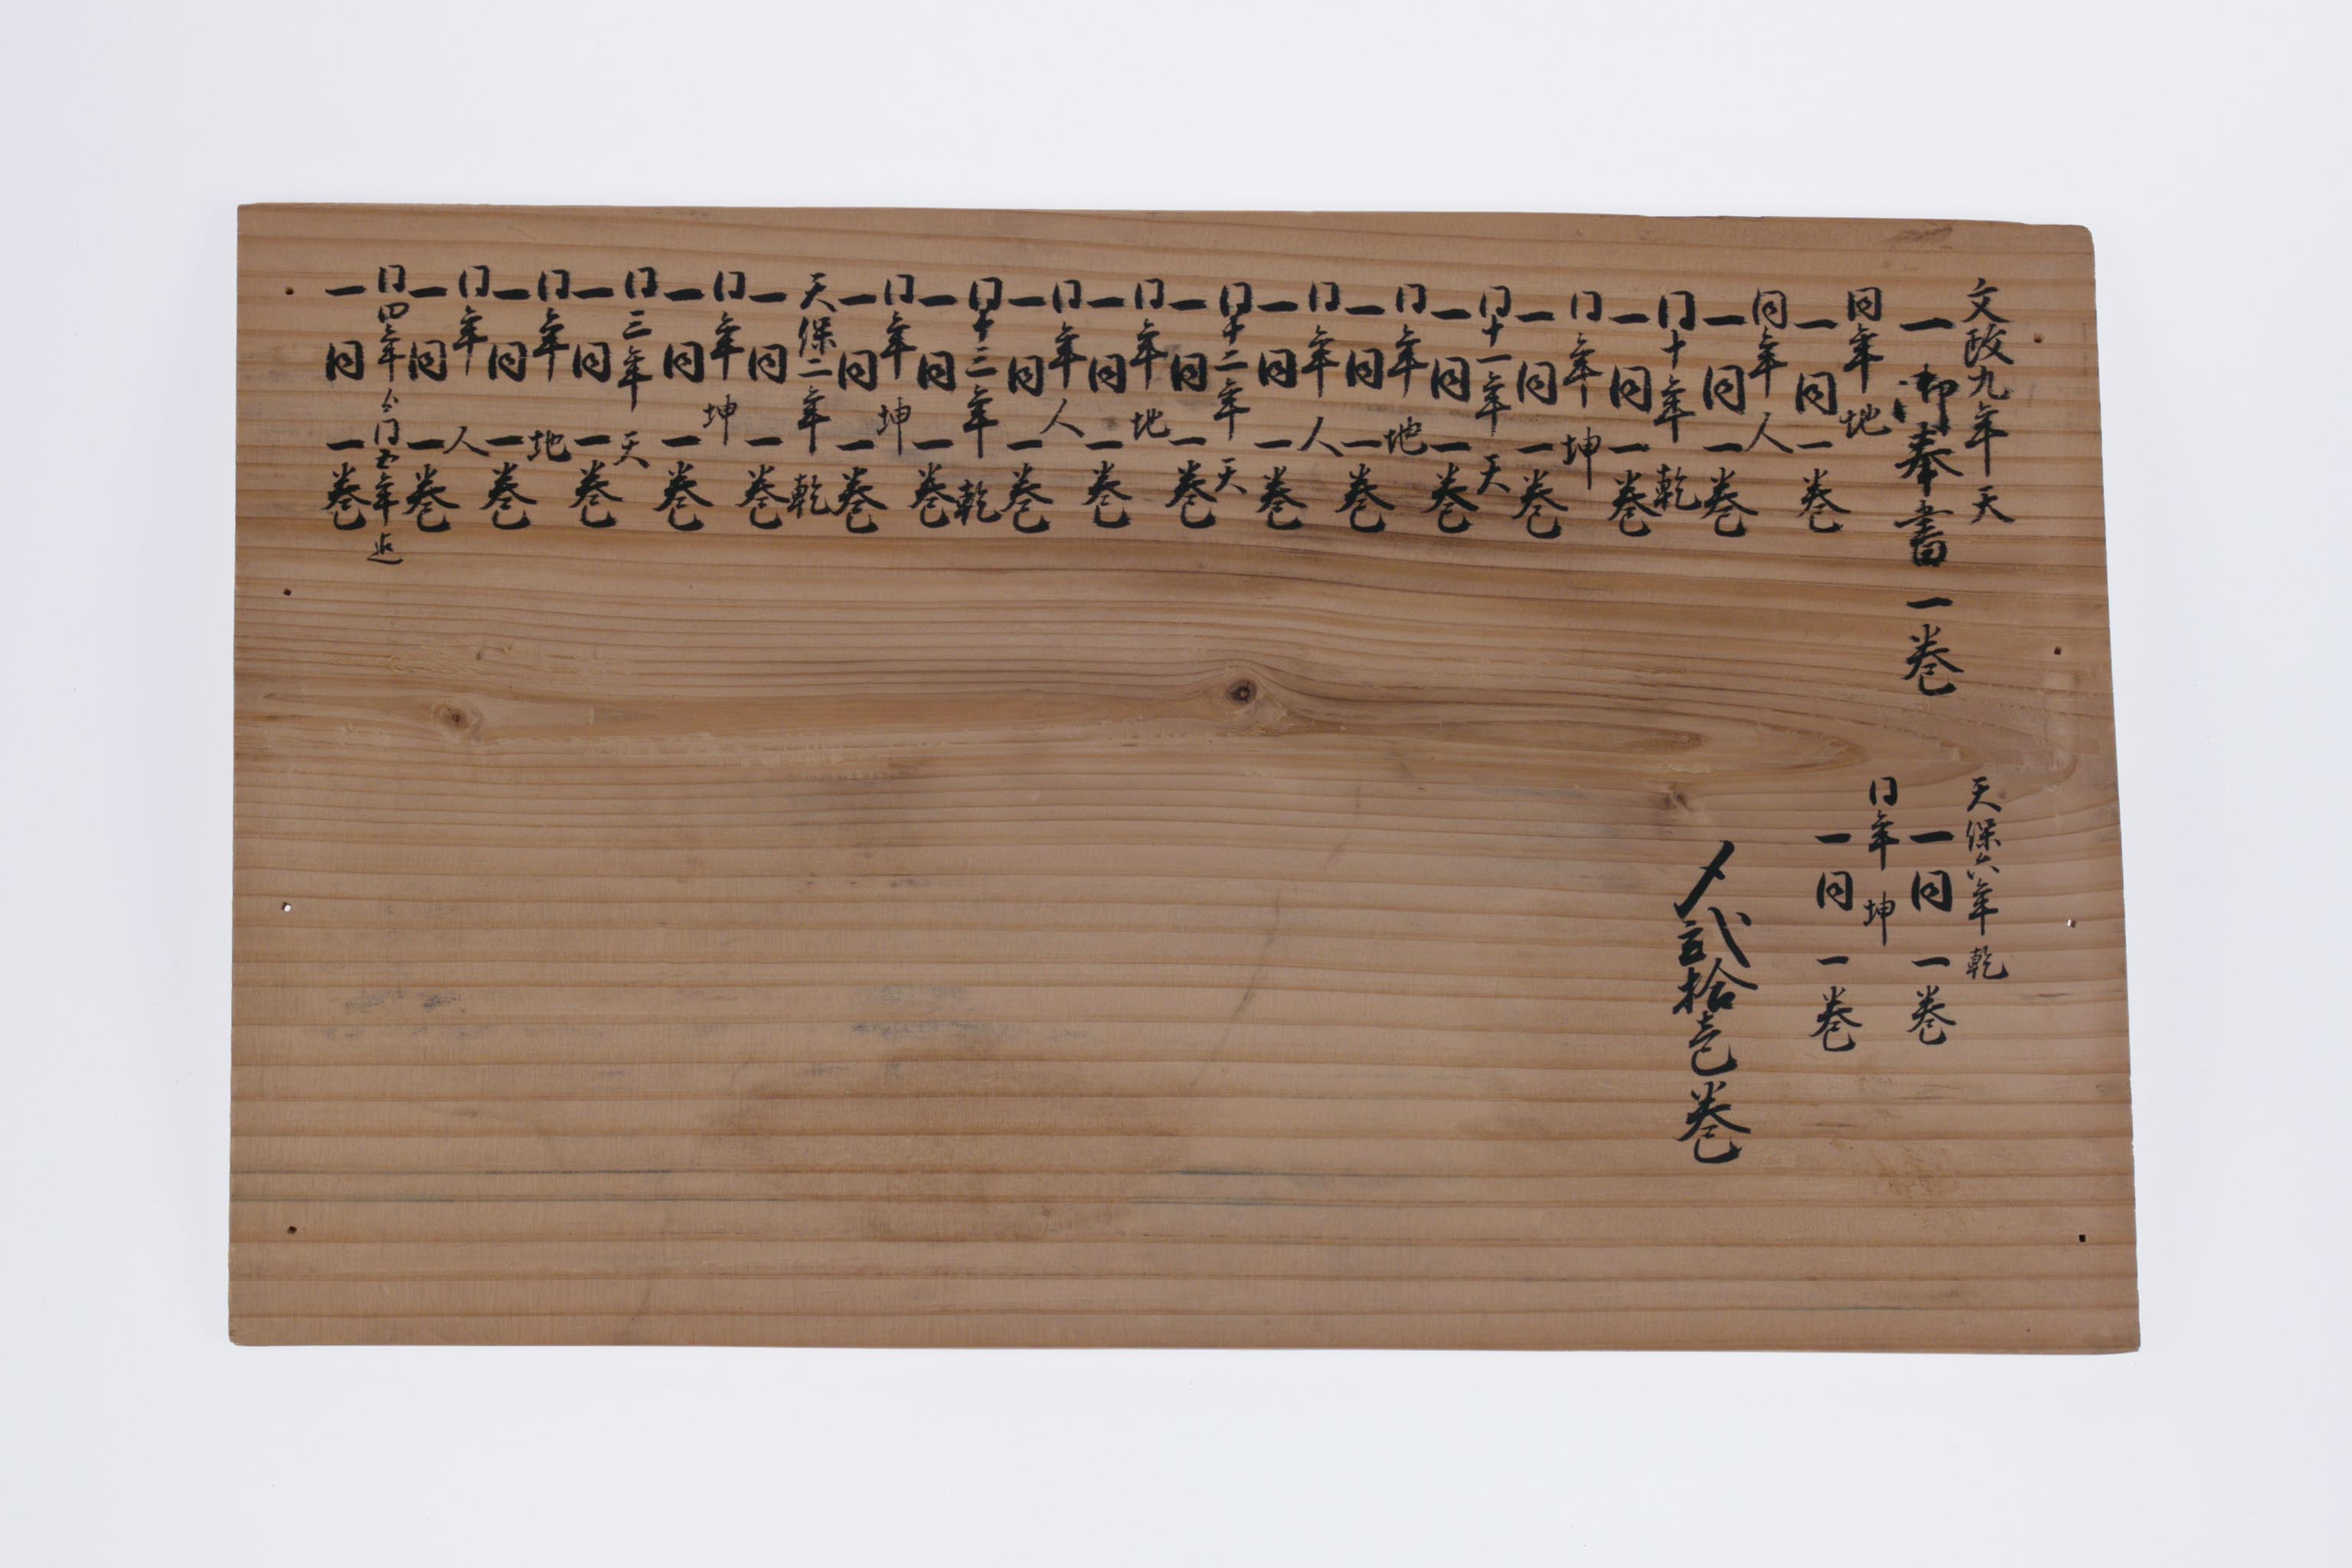 文政九年 天
一 御奉書 一巻
同年 地
一 同 一巻
同年 人
一 同 一巻
同十年 乾
一 同 一巻
同年 坤
一 同 一巻
同十一年 天
一 同 一巻
同年 地
一 同 一巻
同年 人
一 同 一巻
同十二年 天
一 同 一巻
同年 地
一 同 一巻
同年 人
一 同 一巻
同十三年 乾
一 同 一巻
同年 坤
一 同 一巻
天保二年 乾
一 同 一巻
同年 坤
一 同 一巻
同三年 天
一 同 一巻
同年 地
一 同 一巻
同年 人
一 同 一巻
同四年ゟ同五年迄
一 同 一巻
天保六年 乾
一 同 一巻
同年 坤
一 同 一巻
〆弐拾壱巻